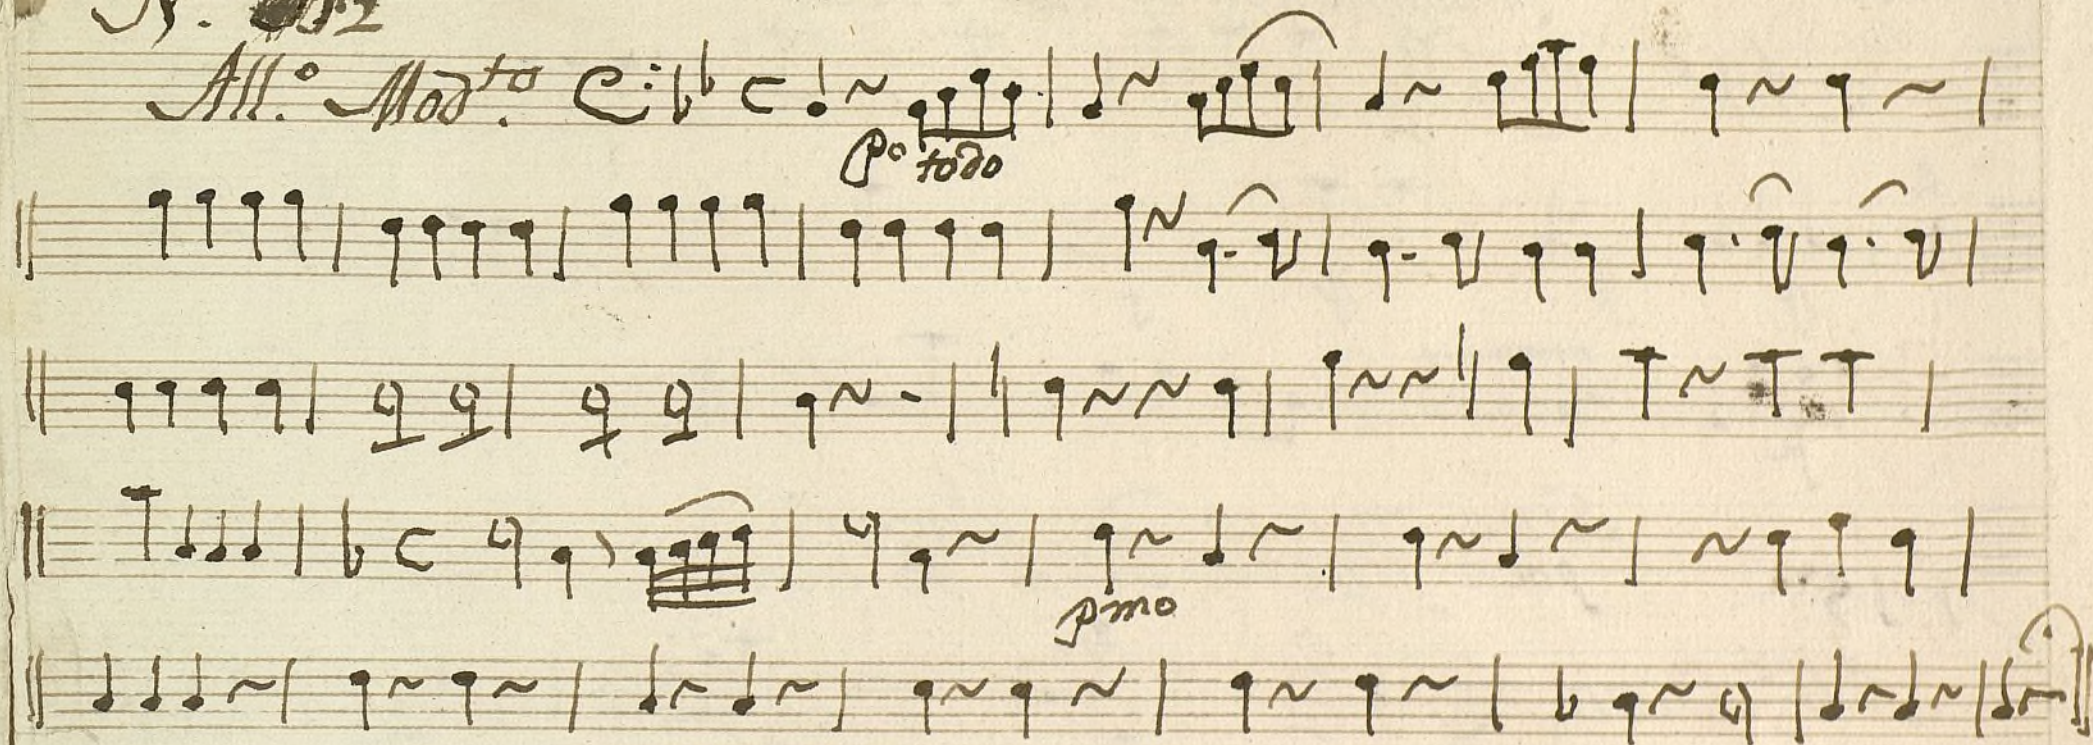 All.º Mod.to
Po todo
pmo